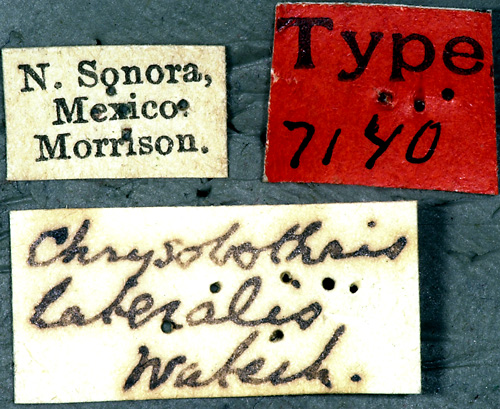 N. Sonora,
Mexico.
Morrison.
Type
7140
Chrysobothris
lateralis
Waterh.